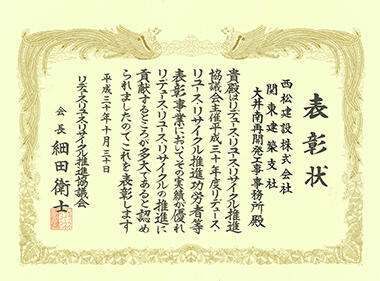 表彰状
西松建設株式会社
関東建築支社
大井南再開発工事事務所殿
貴殿はリデュース・リユース・リサイクル推進
協議会主催平成三十年度リデュース・
リユース・リサイクル推進功労者等
表彰事業においてその実績が優れ
リデュース・リユース・リサイクルの推進に
貢献するところが多大であると認め
られましたのでこれを表彰します
平成三十年十月三十日
リデュース・リユース・リサイクル推進協議会
会長 細田衛士